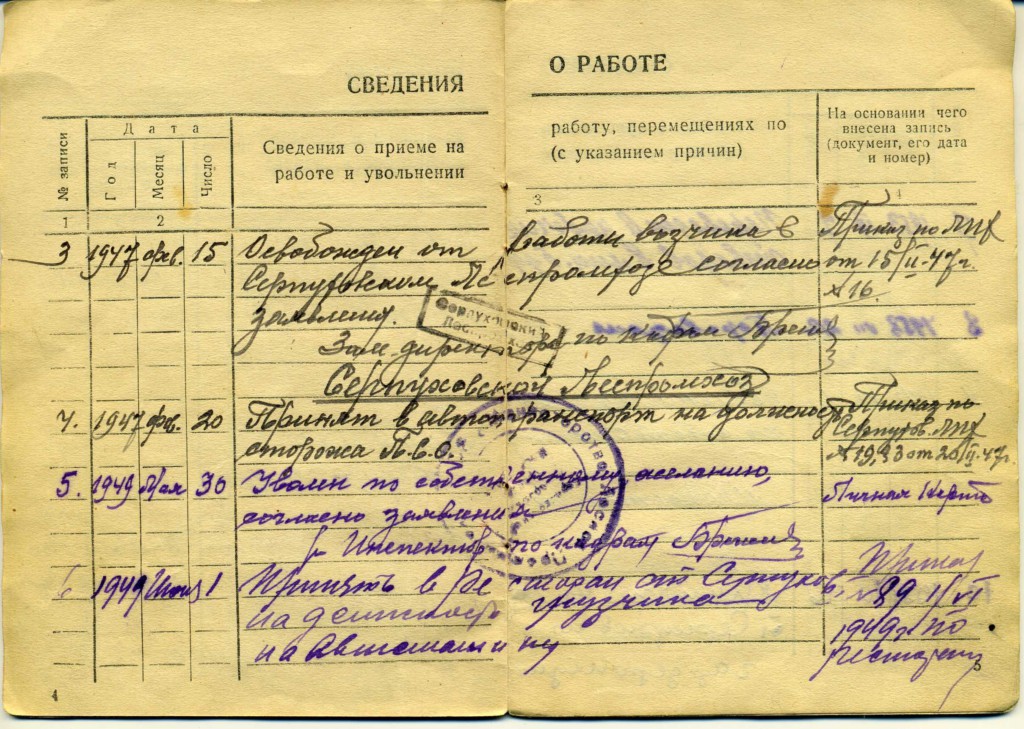 СВЕДЕНИЯ О РАБОТЕ
№ записи
Дата
Год
Месяц
Число
Сведения о приеме на
работе и увольнении
работу, перемещениях по
(с указанием причин)
На основании чего
внесена запись
(документ, его дата
и номер)
1 2 3 4
3 1947 фев. 15 Освобожден от работы возчика в Приказ по ЛПХ
Серпуховском Леспромхозе согласно от 15/II-47г.
заявления. №16.
Зам. директора по кадрам
Серпуховской Леспромхоз
4. 1947 фев. 20 Принят в автотранспорт на должность Приказ по
сторожа П.В.О. Серпухов. ЛПХ
№19, §3 от 20/II-47г.
5. 1949 Мая 30 Уволен по собственному желанию, Личная карта
согласно заявления
Инспектор по кадрам
6 1949 Июня 1 Принять в Ресторан ст Серпухов Приказ
на должность грузчика №89 1/VI
на Автомашину 1949г по
ресторану
4
5